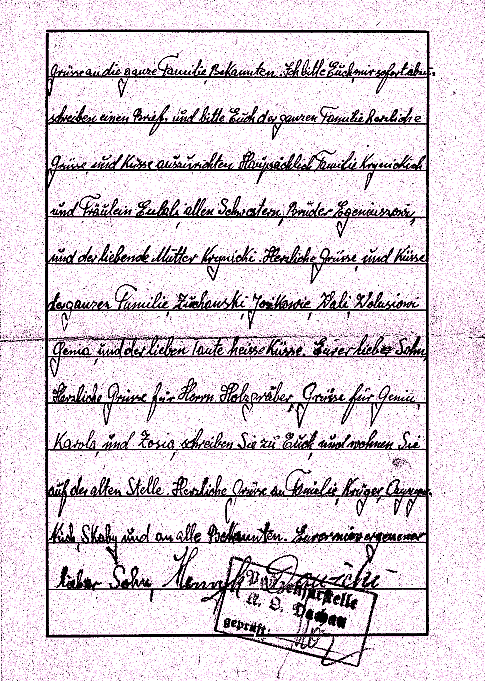 Grüsse an die ganze Familie, Bekannten. Ich bitte Euch mir sofort
schreiben einen Brief, und bitte Euch der ganzen Familie herzliche
Grüsse, und Küsse auszurichten Hauptsächlich Familie
und Fräulein allen Schwestern, Brüder
und der liebende Mutter Krynicki. Herzliche Grüsse, und Küsse
der ganzen Familie, Żuchowski,
Genia, und der lieben Tante heisse Küsse. Eurer lieber Sohn,
Herzliche Grüsse für Herrn Holzgräber, Grüsse für Genia,
Karola, und Zosia, schreiben Sie zu Euch, und wohnen Sie
auf der alten Stelle. Herzliche Grüsse an Familie, Krüger,
und an alle Bekannten.
lieber Sohn, Henryk
Postzensurstelle
K. L. Dachau
geprüft: